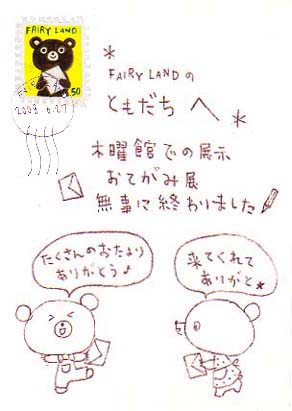 FAIRY LAND
¢50
2008 6.27
FAIRY LANDの
ともだちへ
木曜館での展示
おてがみ展
無事に終わりました!
たくさんのおたより
ありがとう♪
来てくれて
ありがと*